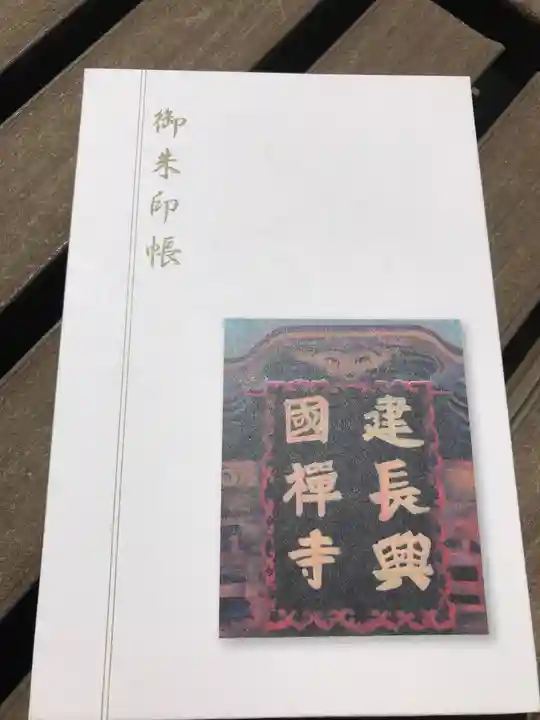 御朱印帳
建長興
國禪寺